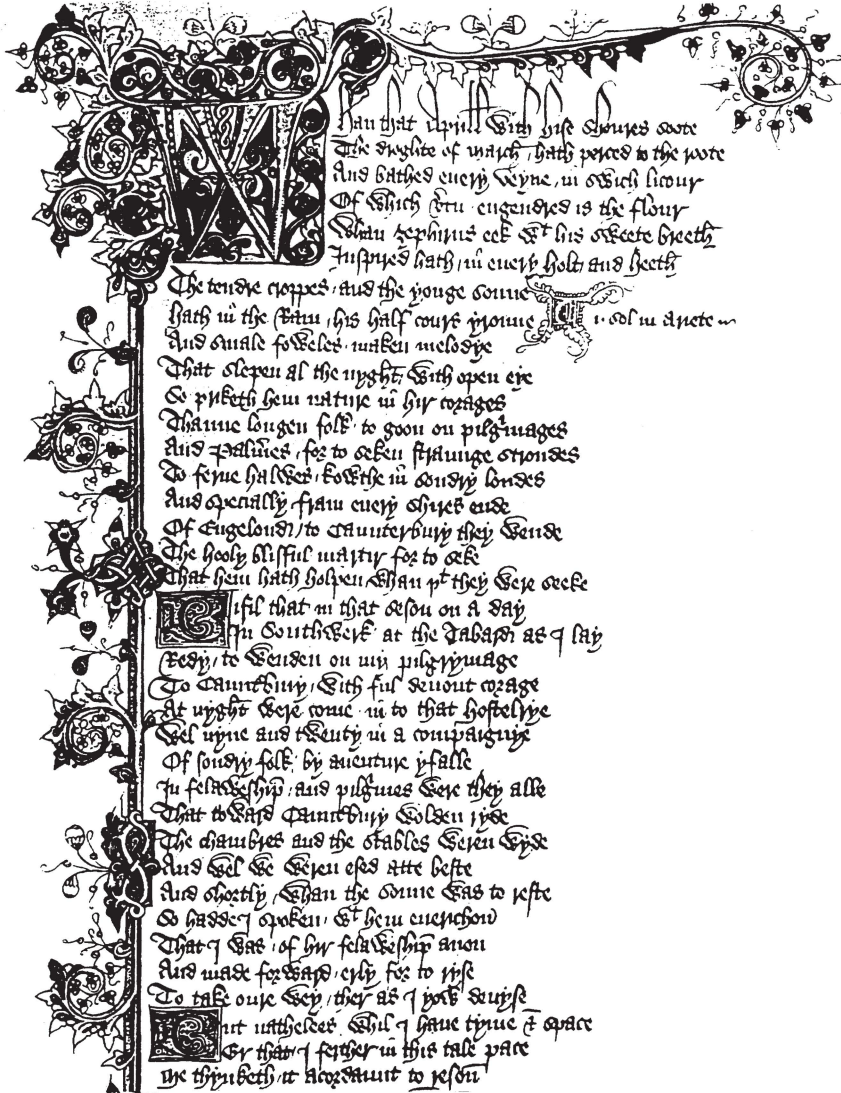 Whan that Aprill with hise shoures soote
The droghte of march / hath perced to the roote
And bathed euery veyne / in swich licour
Of which v̾tu engendred is the flour
Whan zephirus eek wᵗ his sweete breeth
Inspired hath / in euery holt and heeth
The tendre croppes / and the yonge sonne
hath in the Ram / his half cours yronne ¶ .i. sol in Ariete
And smale foweles / maken melodye
That slepen al the nyght / with open eye
So priketh hem nature in hir corages
Thanne longen folk / to goon on pilgͥmages
And Palm̾es / for to seken straunge strondes
To ferne halwes / kowthe in sondry londes
And specially / fram euery shires ende
Of Engelond / to Caunterbury they wende
The hooly blisful martir for to seke
That hem hath holpen whan þᵗ they were seeke
Bifil that in that seson on a day
In Southwerk at the Tabard as I lay
Redy / to wenden on my pilgrymage
To Caunt̾bury / with ful deuout corage
At nyght were come in to that hostelrye
Wel nyne and twenty in a compaignye
Of sondry folk by auenture yfalle
In felaweshipe / and pilgͥmes were they alle
That toward Caunt̾bury wolden ryde
The chambres and the stables weren wyde
And wel we weren esed atte beste
And shortly / whan the sonne was to reste
So hadde I spoken / wᵗ hem euerichon
That I was / of hir felaweshipe anon
And made forward / erly for to ryse
To take oure wey / ther as I yow deuyse
But nathelees whil I haue tyme & space
Er that I ferther in this tale pace
Me thynketh it acordaunt to reson